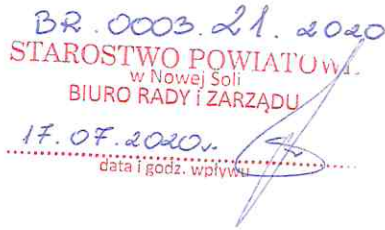 BR.0003.21.2020
STAROSTWO POWIATOWE
w Nowej Soli
BIURO RADY i ZARZĄDU
17.07.2020r.
data i godz. wpływu